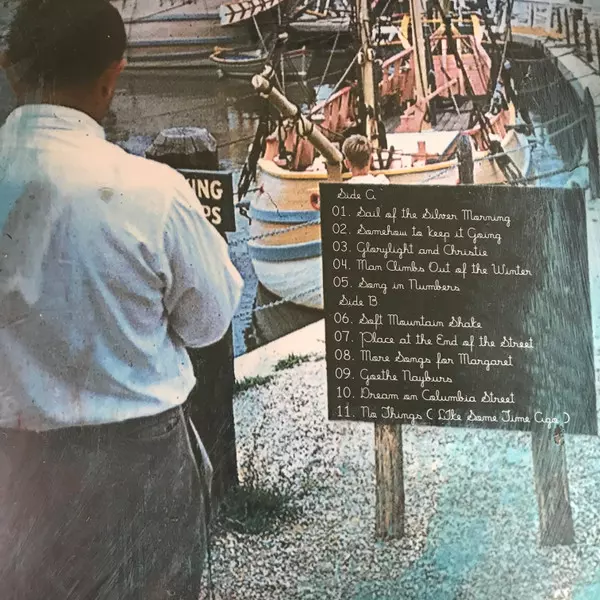 NG
PS
Side A
01. Sail of the Silver Morning
02. Somehow to keep it Going
03. Glorylight and Christie
04. Man Climbs Out of the Winter
05. Song in Numbers
Side B
06. Soft Mountain Shake
07. Place at the End of the Street
08. More Songs for Margaret
09. Goethe Nayburs
10. Dream on Columbia Street
11. No Things ( LIke Some Time Ago )